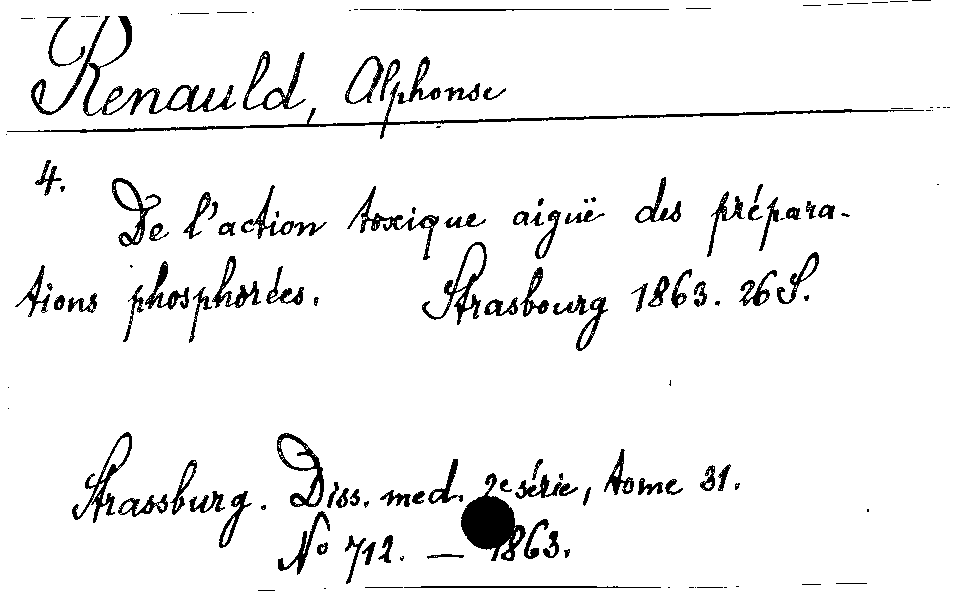 Renauld, Alphonse
4.
De l'action toxique aiguë des prépara-
tions phosphorées. Strasbourg 1863. 26 S.
Strassburg. Diss. med. 2e série, tome 31.
No 712. — 1863.